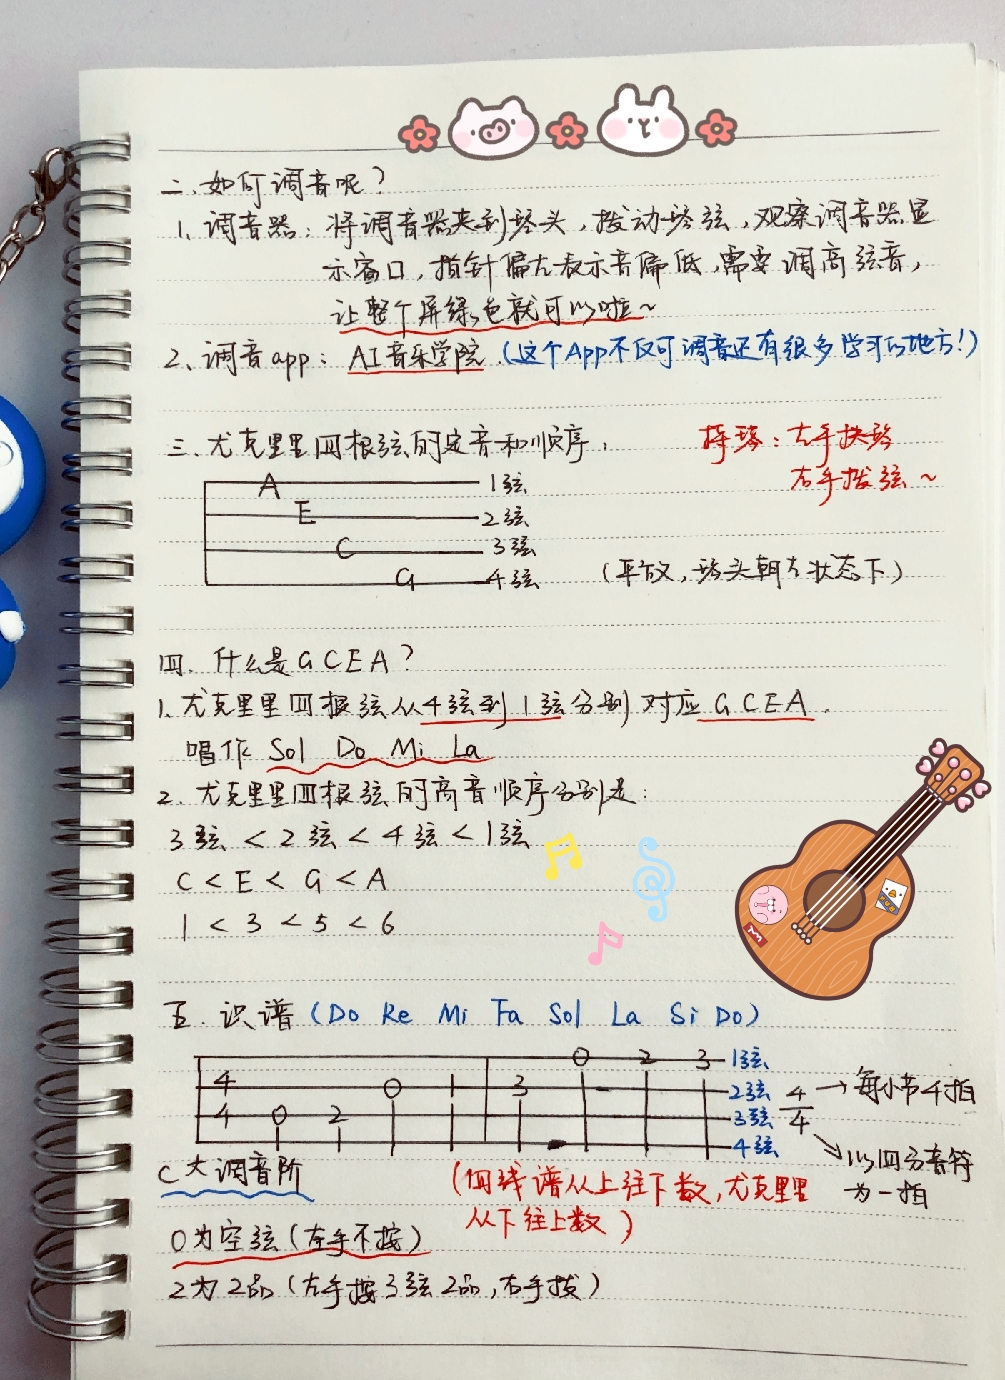 二、如何调音呢？
1、调音器：将调音器夹到琴头，拨动琴弦，观察调音器显
示窗口，指针偏左表示音偏低，需要调高弦音，
让整个屏绿色就可以啦~
2、调音app：AI音乐学院（这个App不仅可调音还有很多学习的地方！）
三、尤克里里四根弦的定音和顺序。
持琴：左手扶琴
右手拨弦~
A 1弦
E 2弦
C 3弦
G 4弦
（平放，琴头朝左状态下）
四、什么是GCEA？
1、尤克里里四根弦从4弦到1弦分别对应GCEA.
唱作 Sol Do Mi La
2、尤克里里四根弦的高音顺序分别是：
3弦＜2弦＜4弦＜1弦
C＜E＜G＜A
1＜3＜5＜6
五、识谱（Do Re Mi Fa Sol La Si Do）
0 2 3 1弦
4 0 1 3 2弦
4 0 2 3弦
4弦
4/4
每小节4拍
以四分音符
为一拍
C大调音阶
（四线谱从上往下数，尤克里里
从下往上数）
0为空弦（左手不按）
2为2品（左手按3弦2品，右手拨）